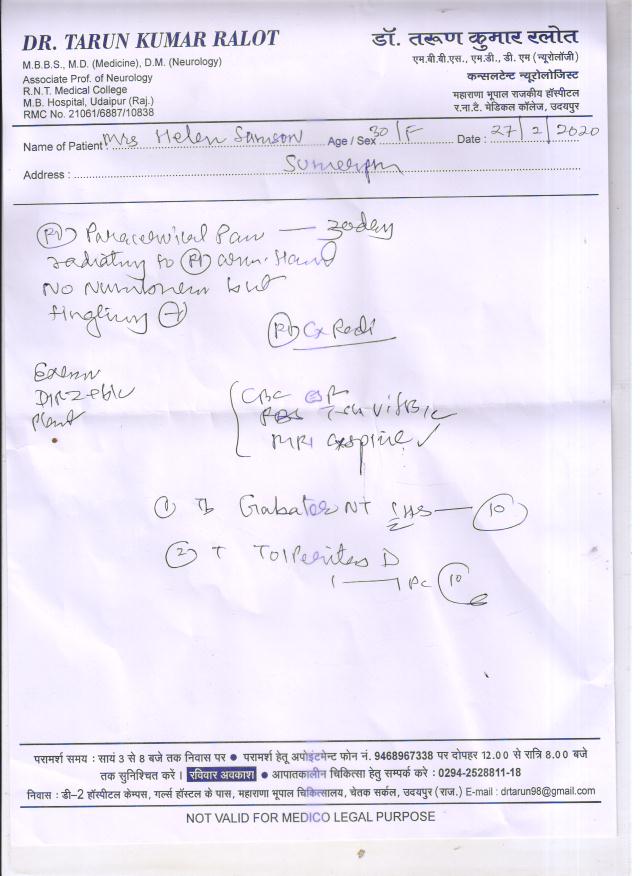 DR. TARUN KUMAR RALOT
M.B.B.S., M.D. (Medicine), D.M. (Neurology)
Associate Prof. of Neurology
R.N.T. Medical College
M.B. Hospital, Udaipur (Raj.)
RMC No. 21061/6887/10838
डॉ. तरूण कुमार रलोत
एम.बी.बी.एस., एम.डी., डी. एम (न्यूरोलॉजी)
कन्सलटेन्ट न्यूरोलोजिस्ट
महाराणा भूपाल राजकीय हॉस्पीटल
र.ना.टै. मेडिकल कॉलेज, उदयपुर
Name of Patient Mrs Helen Samson Age / Sex 30/F Date : 27/2/2020
Address : Sumerpur
Rt Paracervical Pain —
radiating to Rt arm. Hand
No Numbness but
tingling +
Rt Cx Radi
CBC
MRI Cxspine ✓
① Tb Gabator NT HS — 10
② T Tolperitas D
1 — 1 PC 10
परामर्श समय : सायं 3 से 8 बजे तक निवास पर ● परामर्श हेतू अपोइंटमेन्ट फोन नं. 9468967338 पर दोपहर 12.00 से रात्रि 8.00 बजे
तक सुनिश्चित करें । रविवार अवकाश ● आपातकालीन चिकित्सा हेतु सम्पर्क करे : 0294-2528811-18
निवास : डी–2 हॉस्पीटल केम्पस, गर्ल्स हॉस्टल के पास, महाराणा भूपाल चिकित्सालय, चेतक सर्कल, उदयपुर (राज.) E-mail : drtarun98@gmail.com
NOT VALID FOR MEDICO LEGAL PURPOSE